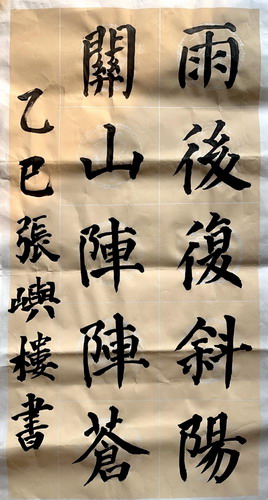 雨後復斜陽
關山陣陣蒼
乙巳張嶼樓書